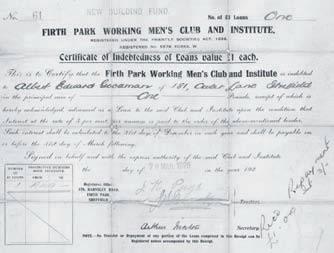 No. 61
NEW BUILDING FUND.
No. of £1 Loans One
FIRTH PARK WORKING MEN'S CLUB AND INSTITUTE,
REGISTERED UNDER THE FRIENDLY SOCIETIES ACT, 1896.
Certificate of Indebtedness of Loans value £1 each.
This is to Certify that the Firth Park Working Men's Club and Institute is indebted
to Albert Edward of 181, Lane Sheffield
in the principal sum of One Pounds, receipt of which is
hereby acknowledged, advanced as a Loan to the said Club and Institute upon the condition that
Interest at the rate of 5 per cent. per annum is paid to the order of the above-mentioned lender.
Such interest shall be calculated to the 31st day of December in each year and shall be payable on
or before the 31st day of March following.
Signed on behalf and with the express authority of the said Club and Institute
this day of in the year 192
Registered Office:
BARNSLEY ROAD,
FIRTH PARK,
SHEFFIELD.
Trustees
Arthur
Secretary
NOTE.—No Transfer or Repayment of any portion of the Loans comprised in this Receipt can be
Registered unless accompanied by this Receipt.
Repayment
Recd